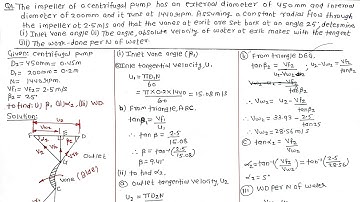 Q: The impeller of a centrifugal pump has an external diameter of 450mm and internal
diameter of 200mm and it runs at 1440 r.p.m. Assuming a constant radial flow through
the impeller at 2.5m/s and that the vanes at exit are set back at an angle 25°, determine
(i) Inlet vane angle (ii) The angle, absolute velocity of water at exit makes with the tangent
(iii) The work-done per N of water.
Given: Centrifugal pump
D2 = 450mm = 0.45m
D1 = 200mm = 0.2m
N = 1440 r.p.m.
Vf1 = Vf2 = 2.5 m/s
β = 25°
Solution:
outlet
Vane
(i) Inlet Vane angle (β1)
Inlet tangential velocity, U1
U1 = πD1N
60
= π×0.2×1440
60
= 15.08 m/s
From triangle, ABC.
tanβ1 = Vf1
U1
∴ tanβ = 2.5
15.08
∴ β = tan⁻¹(2.5/15.08)
β = 9.41°
(ii) to find α2
outlet tangential velocity, U2
U2 = πD2N
From triangle DEG.
tanβ2 = Vf2
U2-Vw2
∴ U2-Vw2 = Vf2
tanβ2
∴ Vw2 = 33.93 - 2.5
tan25
∴ Vw2 = 28.56 m/s
tanα2 = Vf2
Vw2
α2 = tan⁻¹(Vf2/Vw2) = tan⁻¹(2.5/28.56)
α2 = 5°
(iii) WD per N of water